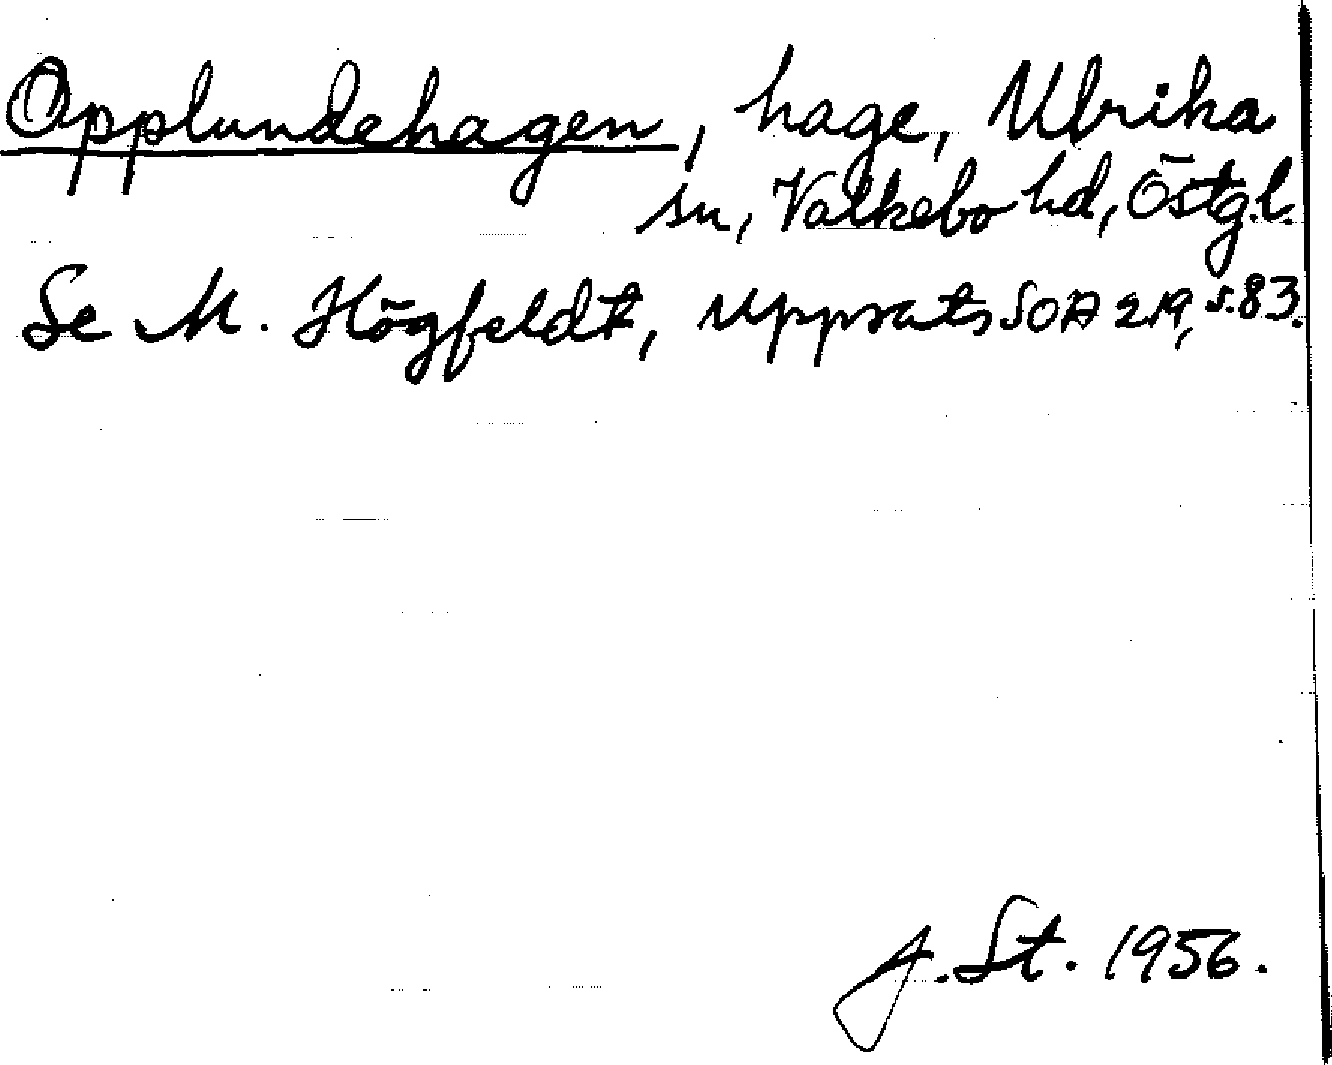 Opplundehagen, hage, Ulrika
sn, Valkebo hd, Östg.l.
Se M. Högfeldt, Uppsats SOA 219, s.83.
J. St. 1956.